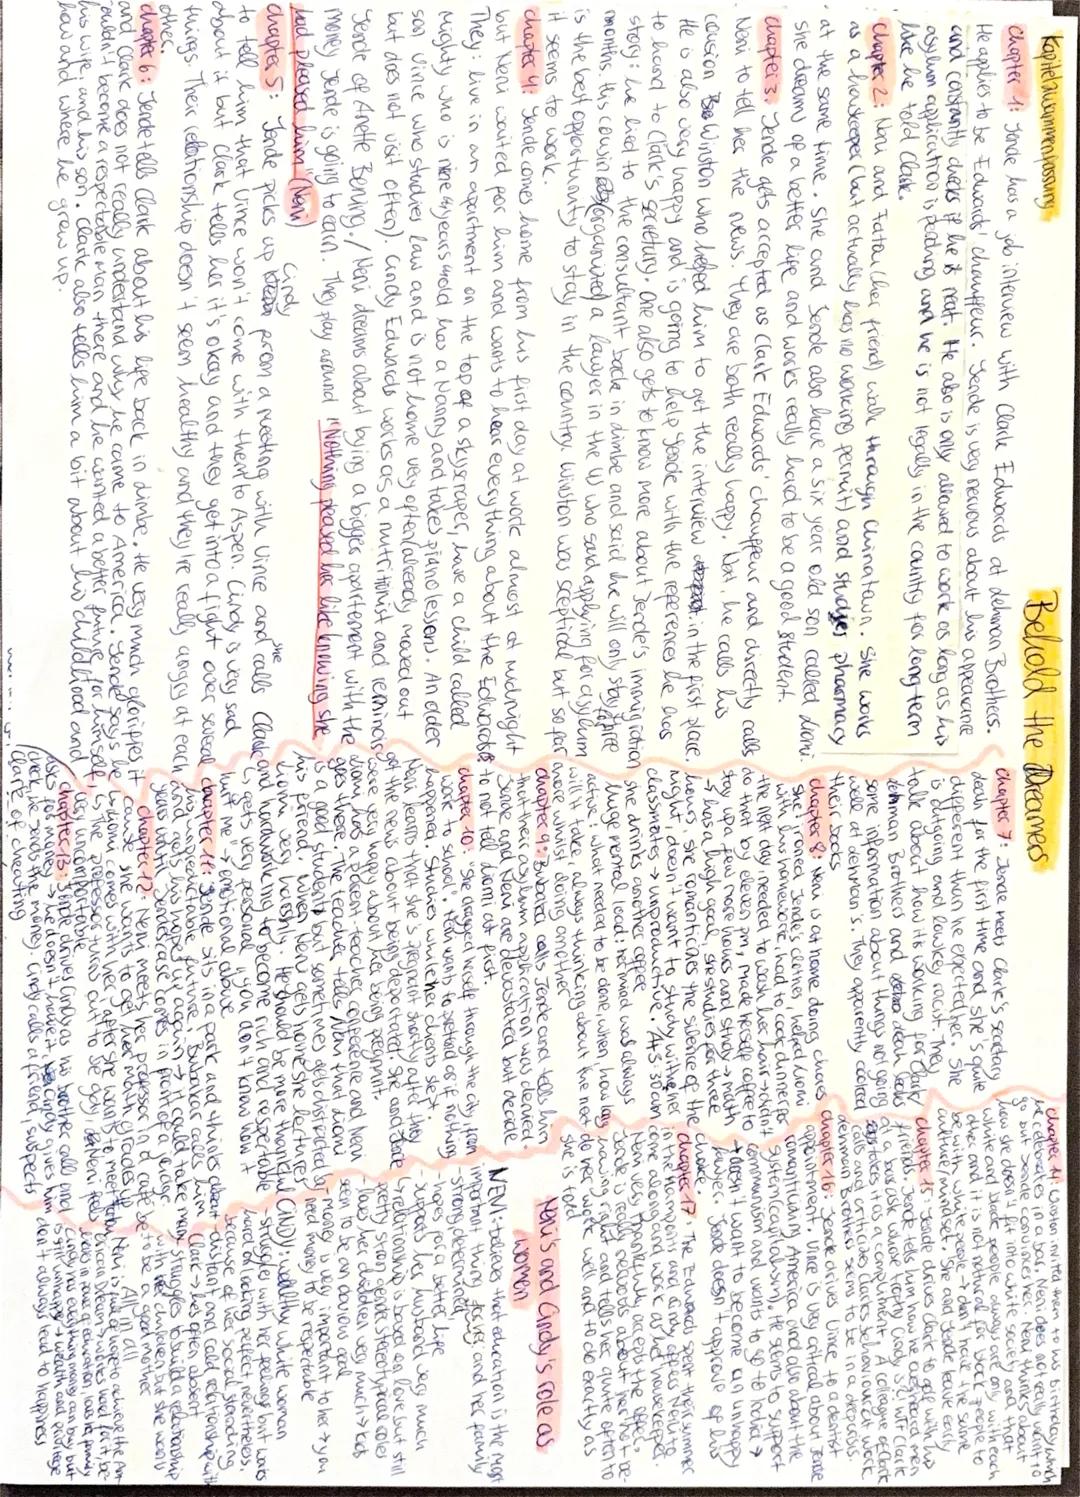 Kapitelzusammenfassung
Behold the Dreamers
chapter 1: Jende has a job interview with Clark Edwards at Lehman Brothers.
He applies to be Edwards' chauffeur. Jende is very nervous about his appearance
and constantly checks if he is neat. He also is only allowed to work as long as his
asylum application is pending and he is not legally in the country for long-term
like he told Clark.
chapter 2: Neni and Fatou (her friend) walk through Chinatown. She works
as a housekeeper (but actually has no working permit) and studies pharmacy
at the same time. She and Jende also have a six year old son called Liomi.
She dreams of a better life and works really hard to be a good student.
chapter 3: Jende gets accepted as Clark Edwards' chauffeur and directly calls
Neni to tell her the news. They are both really happy. Next, he calls his
cousin Winston who helped him to get the interview in the first place.
He is also very happy and is going to help Jende with the references he has
to hand to Clark's secretary. One also gets to know more about Jende's immigration
story: he lied to the consultant back in Limbe and said he will only stay for three
months. His cousin (organized) a lawyer in the US who said applying for asylum
is the best opportunity to stay in the country. Winston was sceptical but so far
it seems to work.
chapter 4: Jende comes home from his first day at work almost at midnight
but Neni waited for him and wants to hear everything about the Edwards.
They live in an apartment on the top of a skyscraper, have a child called
Mighty who is nine years old has a Nanny and takes piano lessons. An older
son Vince who studies law and is not home very often (already moved out
but does not visit often). Cindy Edwards works as a nutritionist and reminds
Jende of Anette Bening. / Neni dreams about buying a bigger apartement with the
money Jende is going to earn. They play around "Nothing pleased her like knowing she
had pleased him" (Neni)
chapter 5: Jende picks up Cindy from a meeting with Vince and she calls Clark
to tell him that Vince won't come with them to Aspen. Cindy is very sad
about it but Clark tells her it's okay and they get into a fight over several
things. Their relationship doesn't seem healthy and they're really angry at each
other.
chapter 6: Jende tells Clark about his life back in Limbe. He very much glorifies it
and Clark does not really understand why he came to America. Jende says he
couldn't become a respectable man there and he wanted a better future for himself,
his wife and his son. Clark also tells him a bit about his childhood and
how and where he grew up.
chapter 7: Jende meets Clark's secretary
Leah for the first time and she's quite
different than he expected her. She
is outgoing and lowkey racist. They
talk about how it is working for Clark/
Lehman Brothers and Leah leaks
some information about things not going
well at Lehman's. They apparently cooked
their books
chapter 8: Neni is at home doing chores
She ironed Jende's clothes, helped Liomi
with his homework, had to cook dinner for
the next day, needed to wash her hair → didn't
do that by eleven pm, made herself coffee to
stay up a few more hours and study → math
↳ has a high goal, she studies for three
hours. She romanticizes the silence of the
night, doesn't want to study with her
classmates → unproductive.
she drinks another coffee
Huge mental load: her mind was always
active: what needed to be done, when, how long
will it take, always thinking about the next
move whilst doing another
chapter 9: Bubakar calls Jende and tells him
that their asylum application was denied.
Jende and Neni are devastated but decide
to not tell Liomi at first.
chapter 10: "She dragged herself through the city, from
work to school". Neni wants to pretend as if nothing
happened. Studies while her clients sleep.
Neni learns that she's pregnant shortly after they
got the news about being deported. She and Jende
were very happy about her being pregnant.
Liomi has a parent teacher conference and Neni
goes there. The teacher tells Neni that Liomi
is a good student but sometimes gets distracted by
his friend. When Neni gets home she lectures
Liomi very harshly. He should be more thankful
and hardworking to become rich and respectable
↳ gets really personal "you don't know how it
hurt me" → emotional abuse
chapter 11: Jende sits in a park and thinks about
his unpredictable future. Bubakar calls him
and gets his hopes up again → it could take many
years until Jende's case comes in front of a judge.
chapter 12: Neni meets her professor in a café be-
cause she wants to get her math grades up.
→ Liomi comes with her after she
The professor turns out to be gay, Neni feels
very uncomfortable.
chapter 13: Jende drives Cindy as his brother calls and
asks for money → he doesn't have it, Cindy gives him
check, he sends the money. Cindy calls a friend, suspects
Clark of cheating
chapter 14: Winston invited them to his birthday which
he celebrates in a bar. Neni does not really want to
go but Jende convinces her. Neni thinks about
how she doesn't fit into white society and that
white and black people always are only with each
other and it is not natural for black people to
be with white people → don't have the same
culture/mindset. She and Jende leave early
chapter 15: Jende drives Clark to golf with his
friends. Jende tells him how he overheard men
at a bar ask whose trophy Cindy is but Clark
takes it as a compliment. A colleague of Clark
calls and criticizes Clark's behaviour at work.
Lehman Brothers seems to be in a deep crisis.
chapter 16: Jende drives Vince to a dentist
appointment. Vince is very critical about Jende
romanticizing America and also about the
system (capitalism). He seems to support
communism and wants to go to India →
doesn't want to become an unhappy
lawyer. Jende doesn't approve of his
choice.
chapter 17: The Edwards spent their summer
in the Hamptons and Cindy offers Neni to
come along and work as housekeeper.
Neni very thankfully accepts the offer.
Jende is really relieved about her not be-
having right and tells her quite often to
do her work well and to do exactly as
she is told
Neni's and Cindy's role as
women
NENI: believes that education is the most
important thing, loving, and her family
- strong, determined
- hopes for a better life
- supports her husband very much
- relationship is based on love but still
pretty strong gender stereotypical roles
- loves her children very much → kids
seem to be an obvious goal
- money is very important to her → you
need money to be respectable
CINDY: wealthy white woman
- struggles with her feelings but works
hard on being perfect nevertheless
because of her social standing
- distant and cold relationship with
Clark → he's often absent
- struggles to build a relationship
with her children but she wants
to be a good mother
All in all